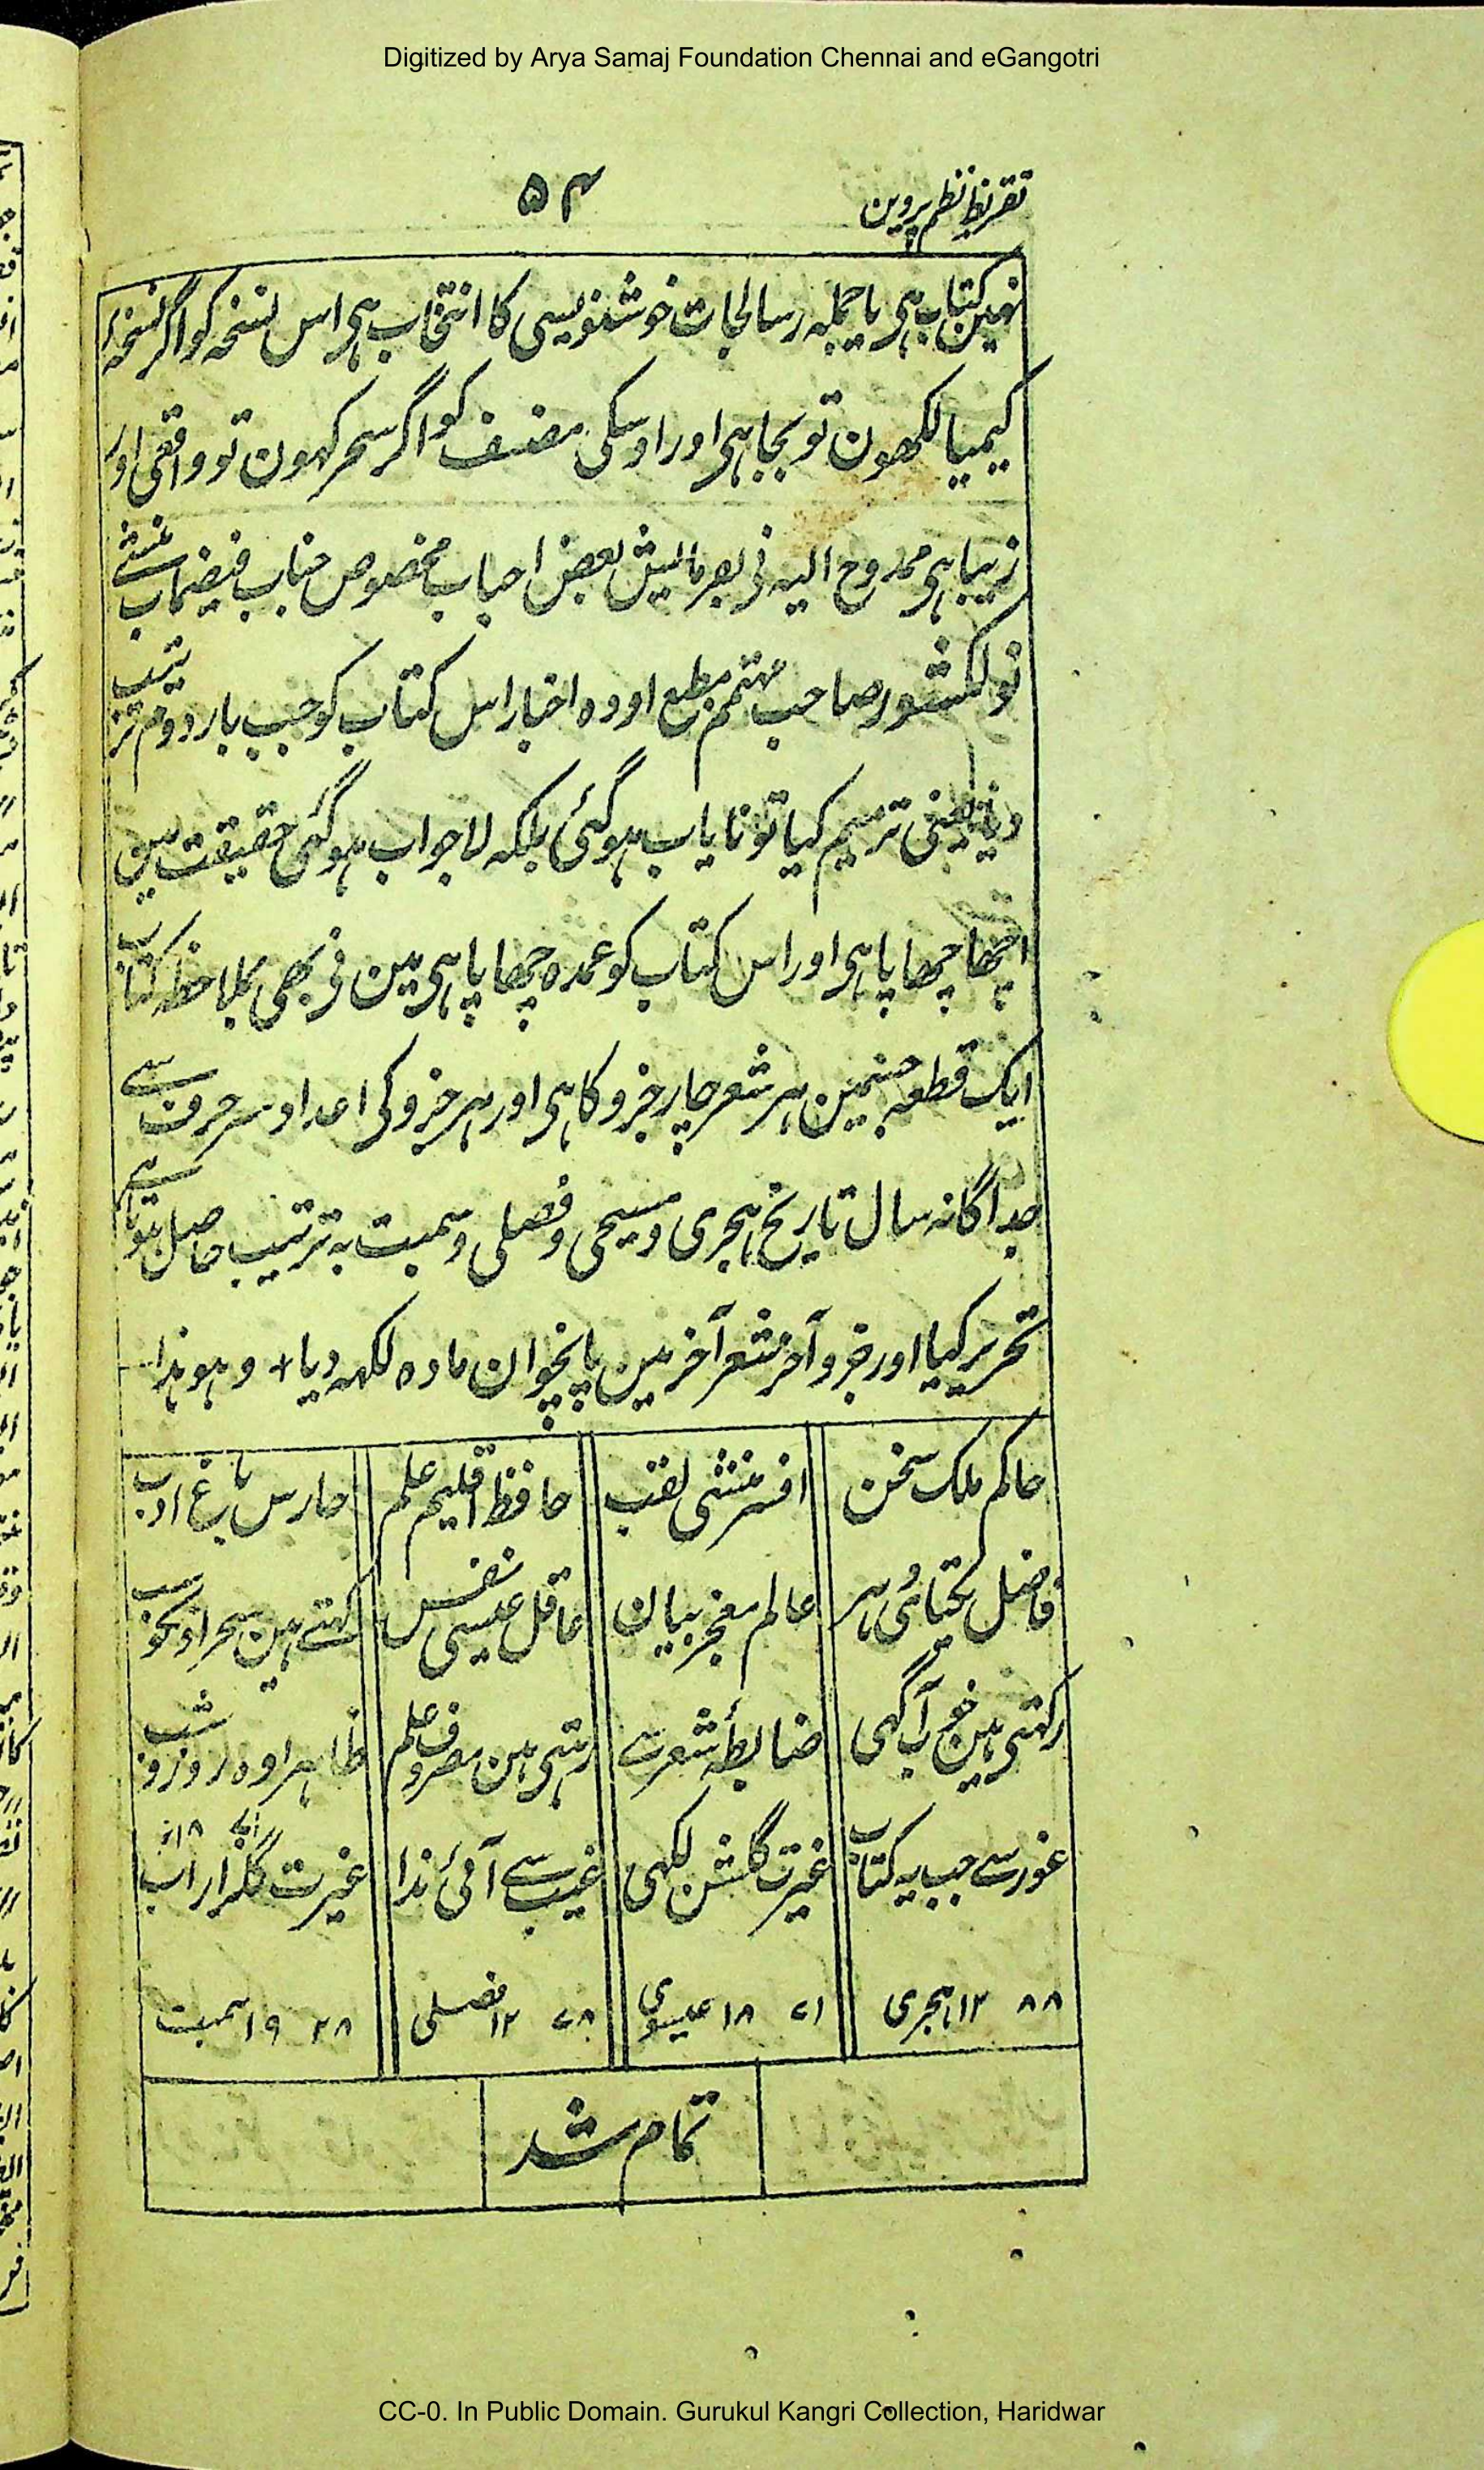 Digitized by Arya Samaj Foundation Chennai and eGangotri
تقریظ نظم پروین
۵۴
نہین کتاب ہی یا جملہ رسالجات خوشنویسی کا انتخاب ہی اس نسخہ کو اگر نسخہ
کیمیا لکھون تو بجا ہی اور اوسکی مصنف کو اگر سحر کہون تو واقعی اور
زیبا ہی ممدوح الیہ نی بفرمایش بعض احباب مخصوص جناب فیضماب منشی
نولکشور صاحب مہتمم مطبع اودہ اخبار اس کتاب کو جب بار دوم ترتیب
دیا یعنی ترمیم کیا تو نایاب ہو گئی بلکہ لاجواب ہو گئی حقیقت مین
اچھا چھاپا ہی اور اس کتاب کو عمدہ چھاپا ہی مین نی بھی بملاحظہ کتاب
ایک قطعہ جسمین ہر شعر چار جزو کا ہی اور ہر جزو کی اعداد سر حرف سے
جداگانہ سال تاریخ ہجری و مسیحی و فصلی و سمبت بہ ترتیب حاصل ہوتا ہے
تحریر کیا اور جزو آخر شعر آخر مین پانچوان مادہ لکھہ دیا + و ہو ہذا
حاکم ملک سخن افسر منشی لقب حافظ اقلیم علم حارس باغ ادب
فاضل یکتائی ہر عالم معجز بیان عاقل عیسی نفس کہتے ہین سحر اونکو سب
رکہتی ہین خوب آگہی ضابطۂ شعر سے رہتی ہین مصروف علم ظاہرا وہ روز و شب
غور سے جب یہ کتاب غیرت گلشن لکہی غیب سے آئی ندا غیرت گلزار اب
۱۲۸۸ ہجری ۱۸۷۱ عیسوی ۱۲۷۸ فصلی ۱۹۲۸ سمبت
تمام شد
CC-0. In Public Domain. Gurukul Kangri Collection, Haridwar